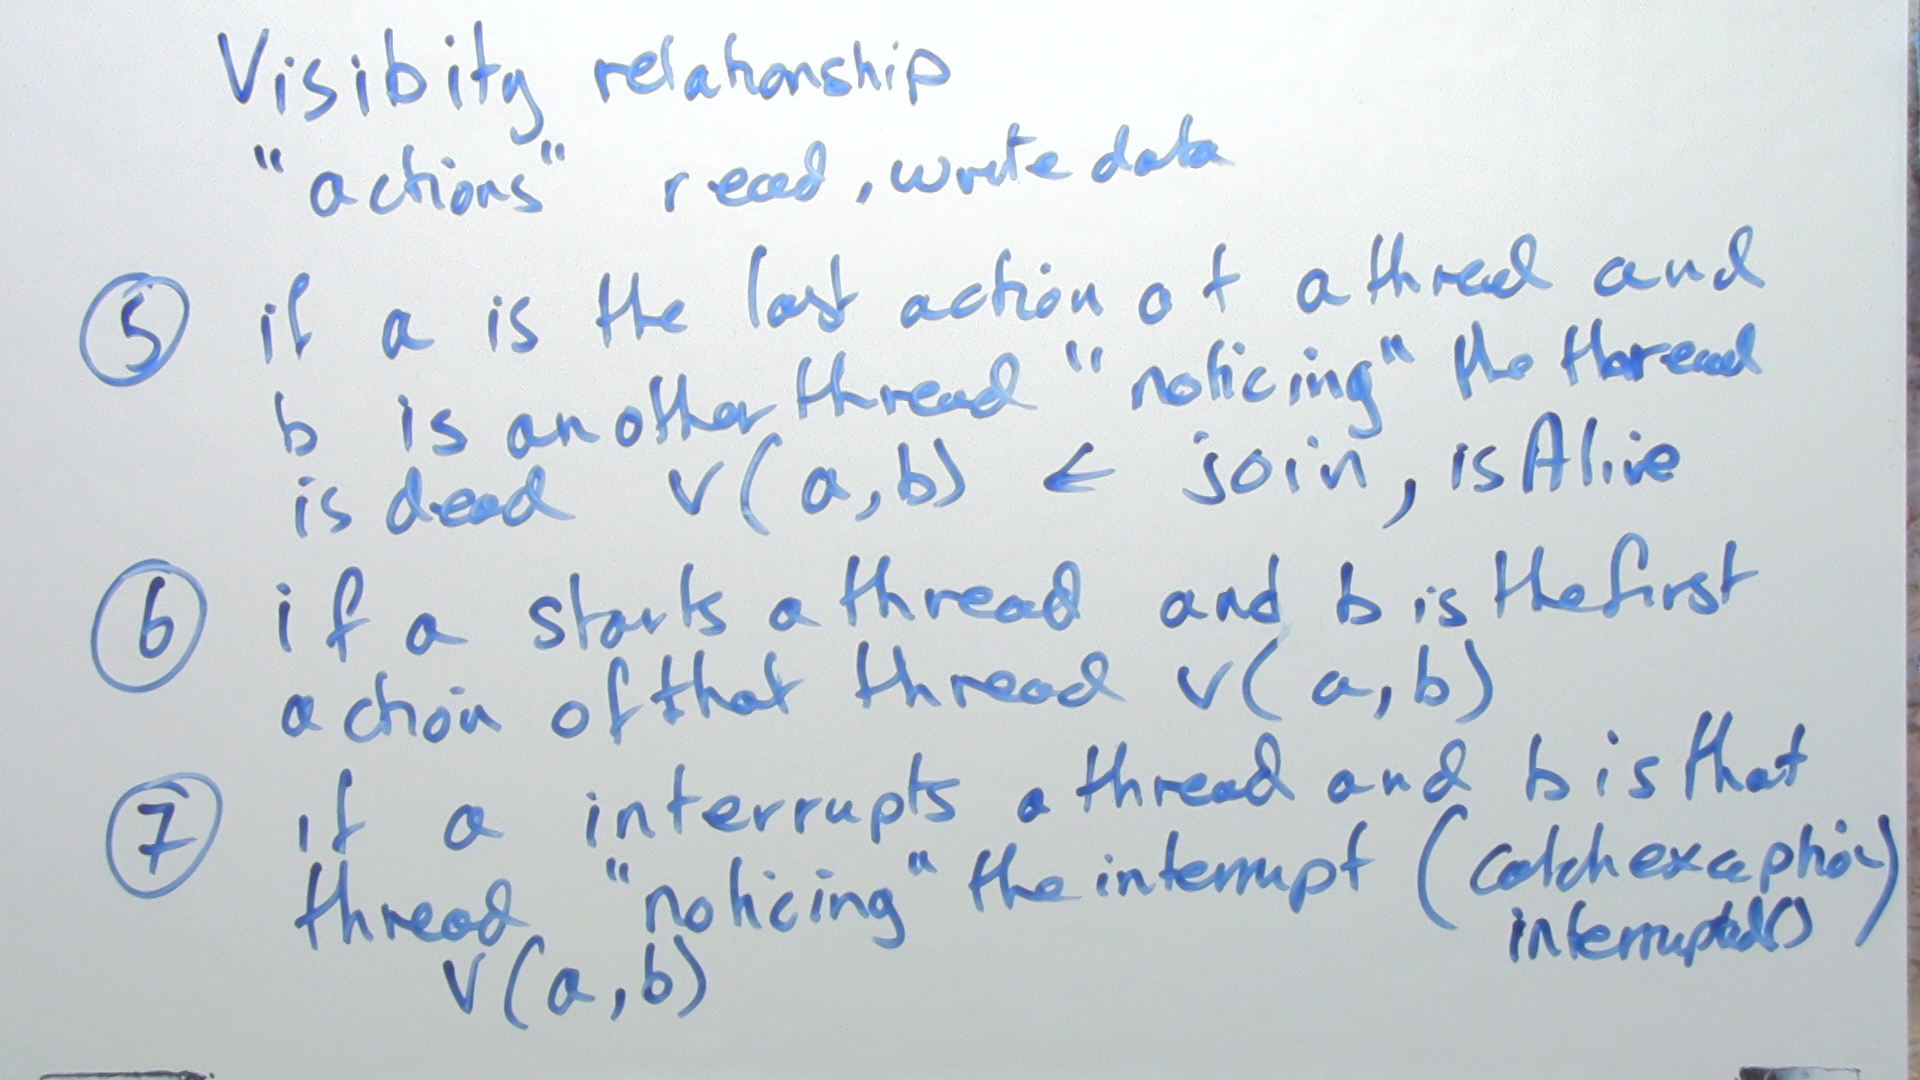 Visibity relationship
"actions" read, write data
⑤ if a is the last action of a thread and
b is another thread "noticing" the thread
is dead v(a,b) ← join, isAlive
⑥ if a starts a thread and b is the first
action of that thread v(a,b)
⑦ if a interrupts a thread and b is that
thread "noticing" the interrupt (catch exception
interrupted())
v(a,b)